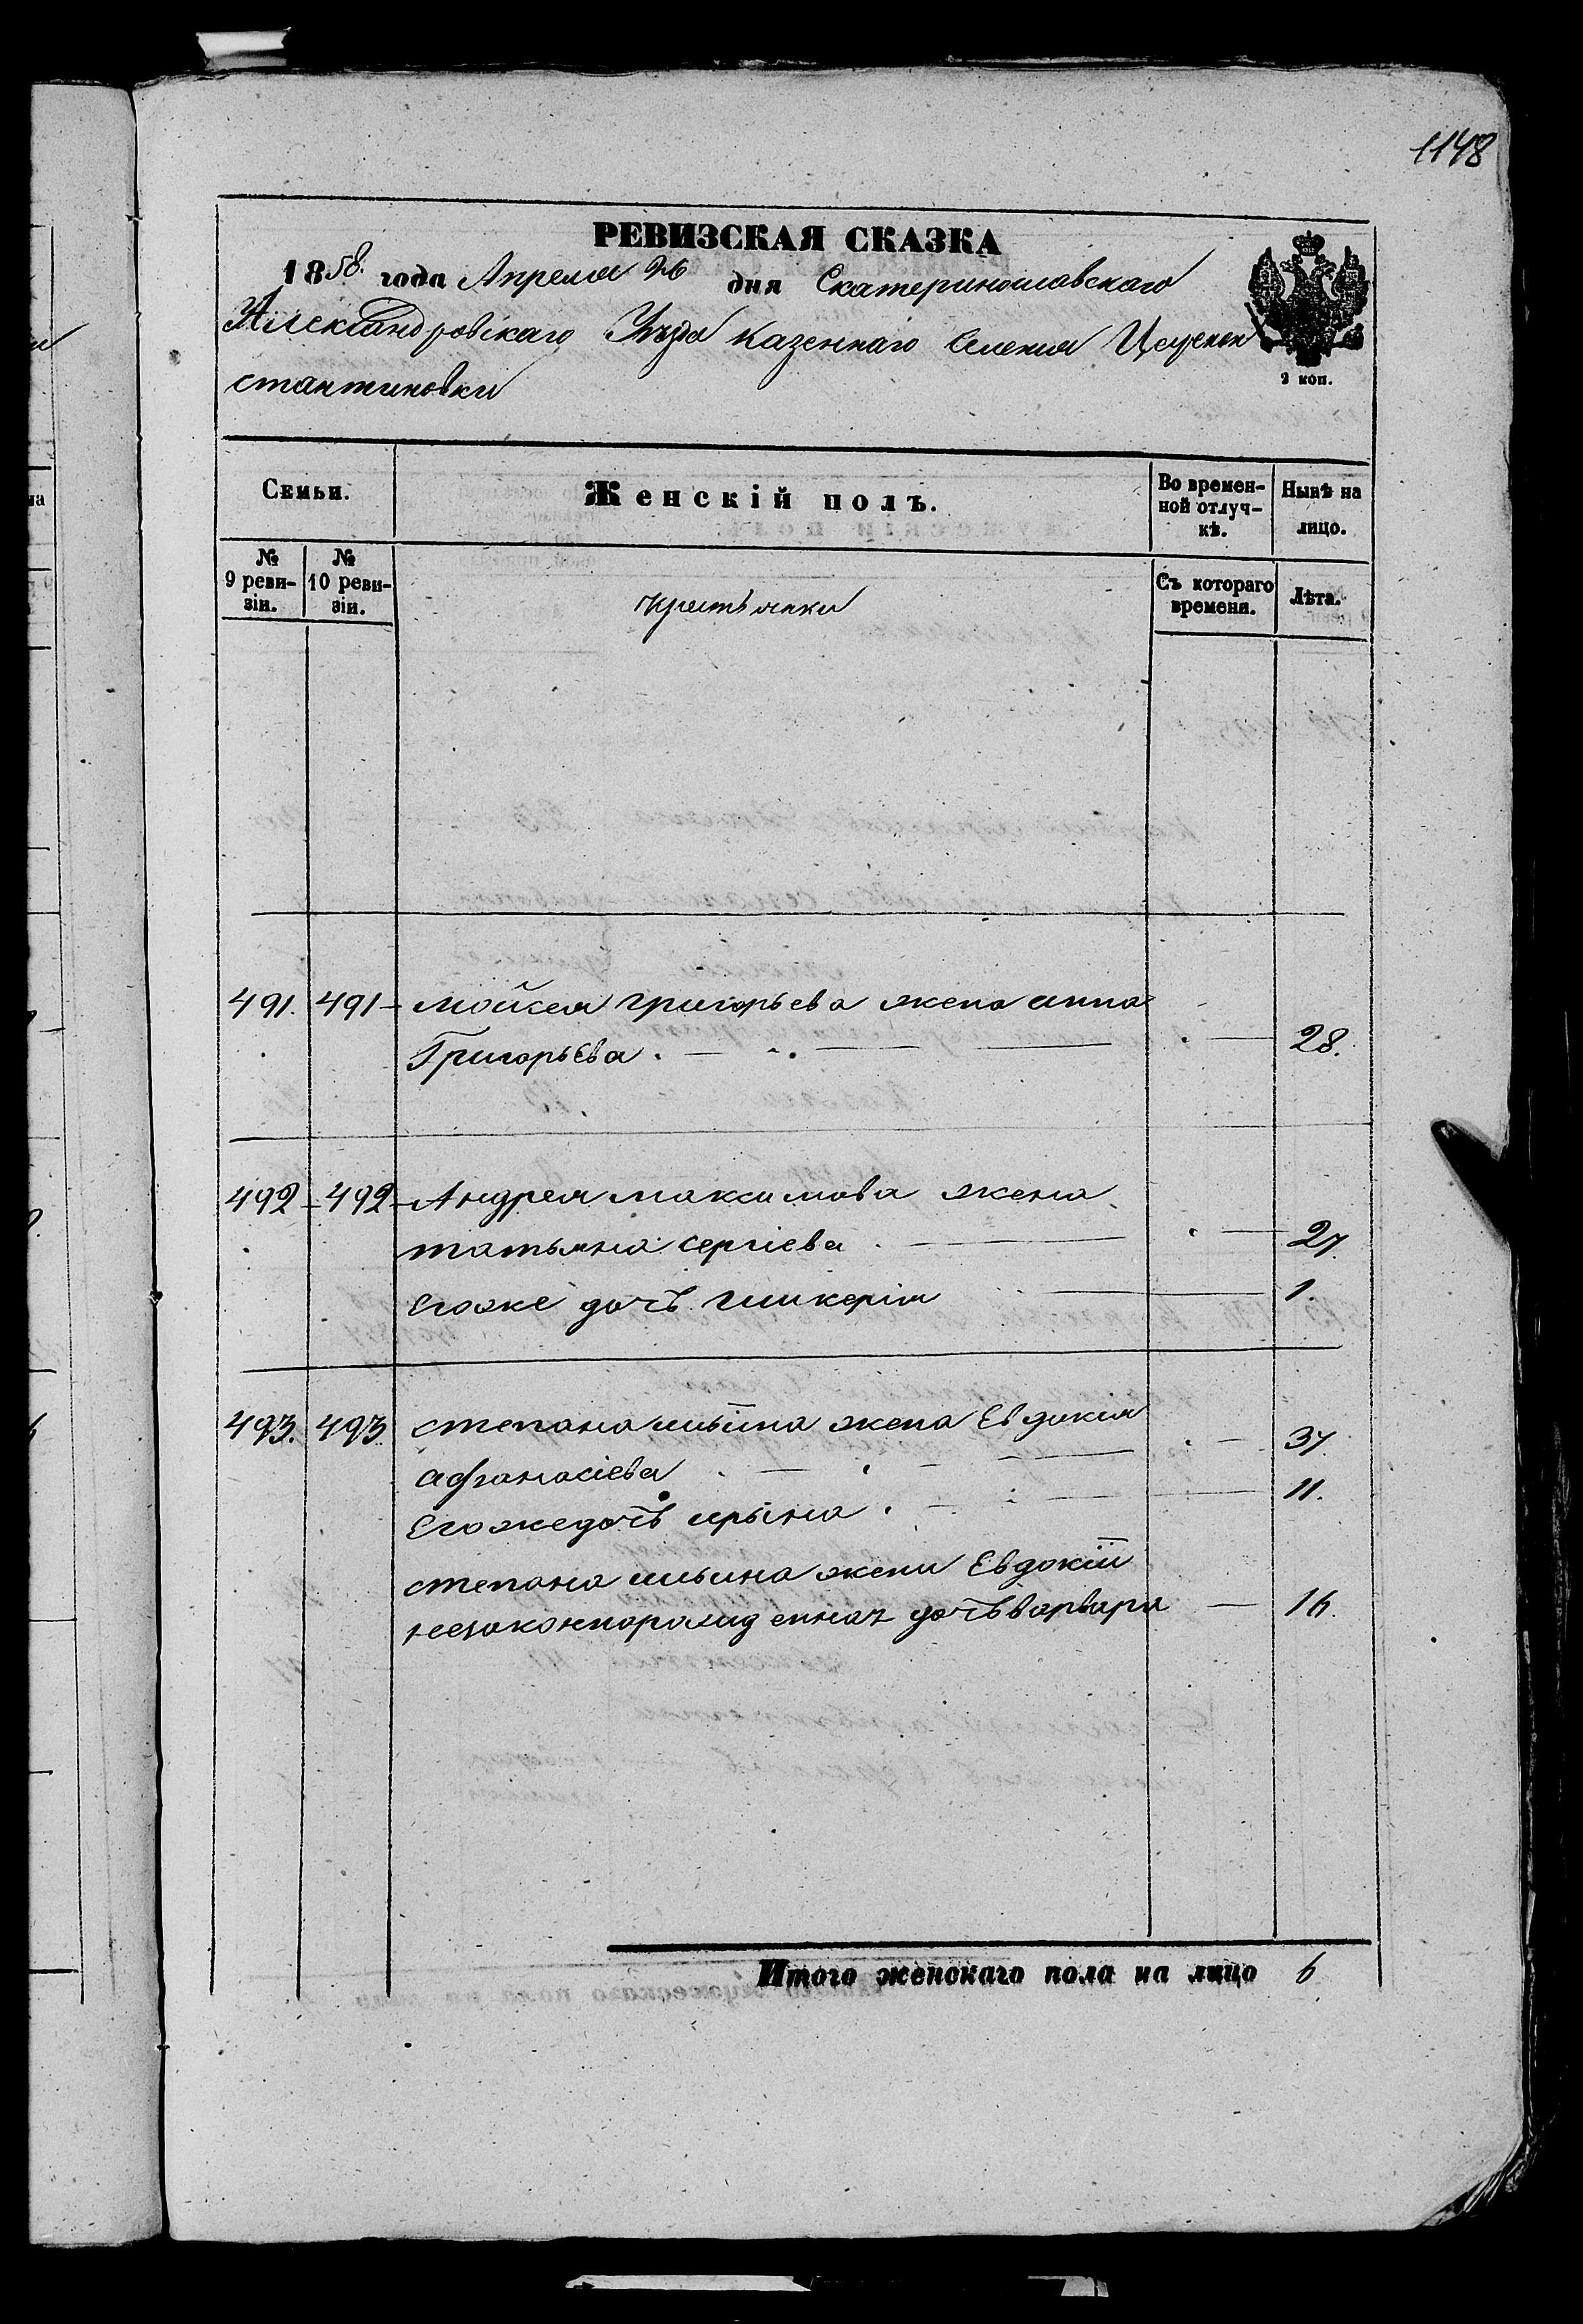 1148
РЕВИЗСКАЯ СКАЗКА
1858. года Апреля 26 дня Екатеринославскаго
Александровскаго Уезда казеннаго Селения
стантиновки
2 коп.
Семьи.
Женскій полъ.
Во времен-
ной отлуч-
кѣ.
Нынѣ на
лицо.
№
9 реви-
зіи.
№
10 реви-
зіи.
крестьянки
Съ котораго
времени.
Лѣта.
491. 491 - мойсея григорьева жена анна
Григорьева . — — 28.
492 - 492 - Андрея максимова жена
татьяна сергіева . — 27.
Егоже дочь гликерія — 1.
493. 493 степана ильина жена Евдокия
афанасіева . — 37.
Егоже дочь ирына . — 11.
степана ильина жены Евдокіи
дочь варвара — 16.
Итого женскаго пола на лицо 6